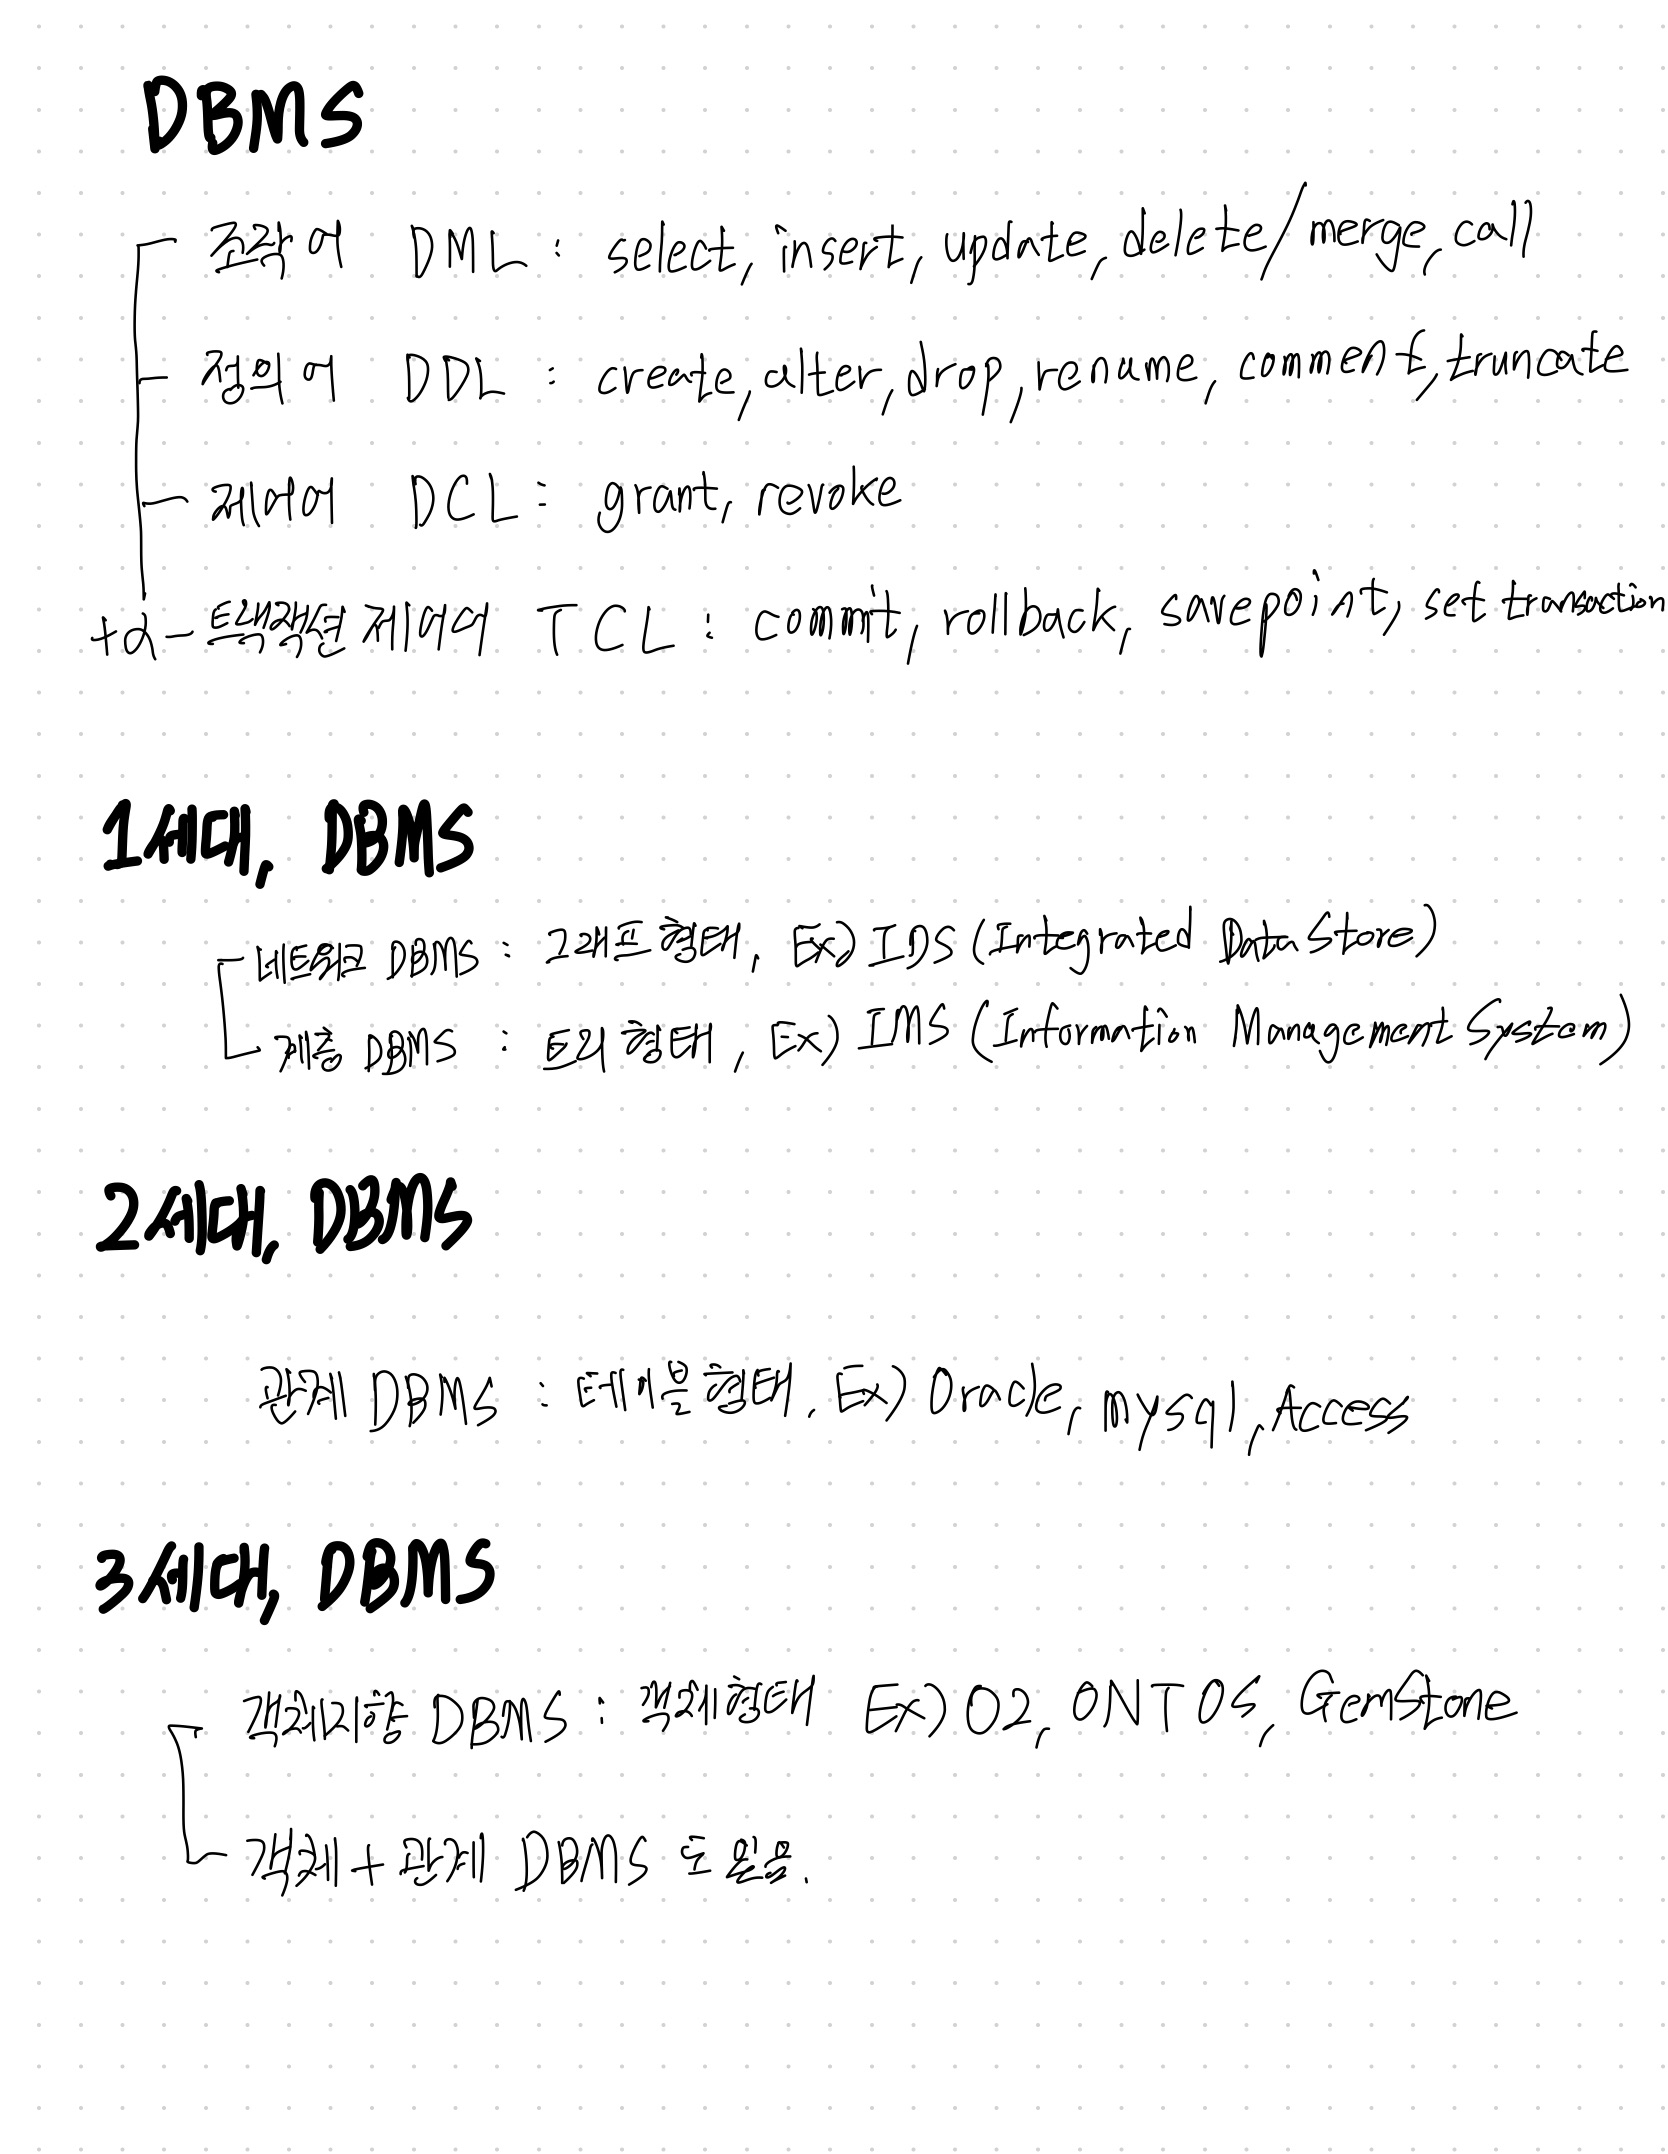 DBMS
조작어 DML : select, insert, update, delete/merge, call
정의어 DDL : create, alter, drop, rename, comment, truncate
제어어 DCL : grant, revoke
+α - 트랙잭션 제어어 TCL : commit, rollback, savepoint, set transaction
1세대, DBMS
네트워크 DBMS : 그래프 형태, Ex) IDS (Integrated Data Store)
계층 DBMS : 트리 형태, Ex) IMS (Information Management System)
2세대, DBMS
관계 DBMS : 테이블 형태, Ex) Oracle, mysql, Access
3세대, DBMS
객체지향 DBMS : 객체형태 Ex) O2, ONTOS, GemStone
객체+관계 DBMS 도 있음.